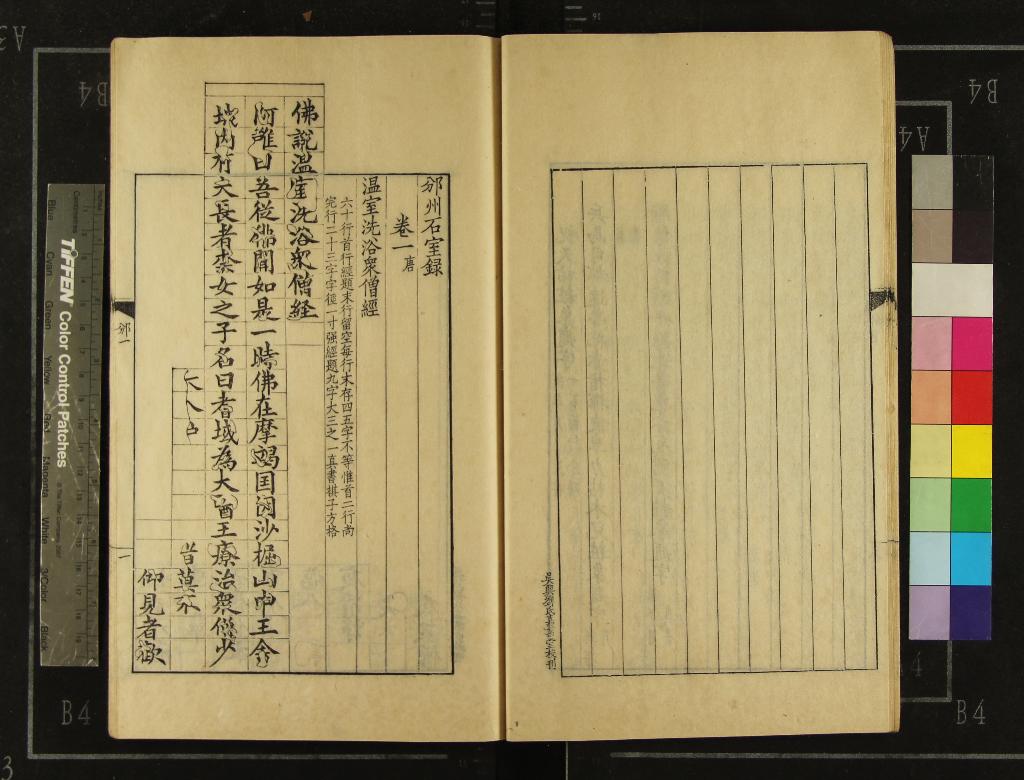 吳興劉氏嘉業堂校刊
邠州石室録
卷一 唐
温室洗浴衆僧經
六十行首行經題末行留空每行末存四五字不等惟首二行尚
完行二十三字字徑一寸强經題九字大三之一真書棋子方格
佛說温室洗浴衆僧經
阿難曰吾從佛聞如是一時佛在摩竭国闍沙掘山中王舍
城内有大長者柰女之子名曰耆域為大醫王療治衆僧少
大人
昔莫不
仰見者歡
邠一
一
TIFFEN Color Control Patches
© The Tiffen Company, 2007
Centimetres
Blue
Cyan
Green
Yellow
Red
Magenta
White
3/Color
Black
A3
B4
B4
A4
B4
B4
3